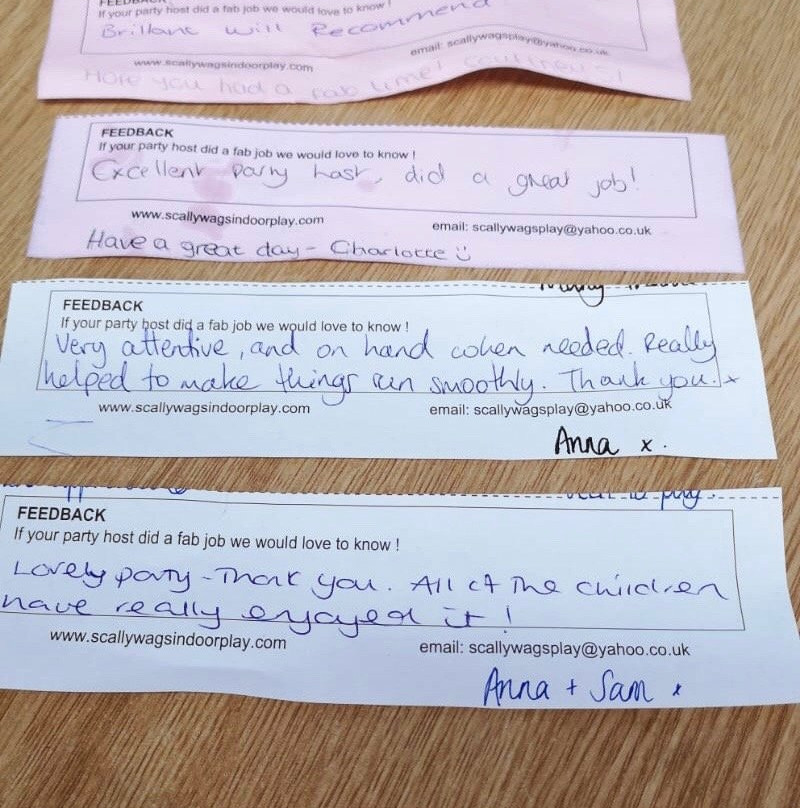 FEEDBACK
If your party host did a fab job we would love to know !
Brillant will Recommend
email: scallywagsplay@yahoo.co.uk
www.scallywagsindoorplay.com
Hope you had a fab time!
FEEDBACK
If your party host did a fab job we would love to know !
Excellent party host, did a great job!
www.scallywagsindoorplay.com
email: scallywagsplay@yahoo.co.uk
Have a great day - Charlotte
FEEDBACK
If your party host did a fab job we would love to know !
Very attentive, and on hand when needed. Really
helped to make things run smoothly. Thank you. x
www.scallywagsindoorplay.com
email: scallywagsplay@yahoo.co.uk
Anna x.
play.
FEEDBACK
If your party host did a fab job we would love to know !
Lovely party - Thank you. All of the children
have really enjoyed it!
www.scallywagsindoorplay.com
email: scallywagsplay@yahoo.co.uk
Anna + Sam x